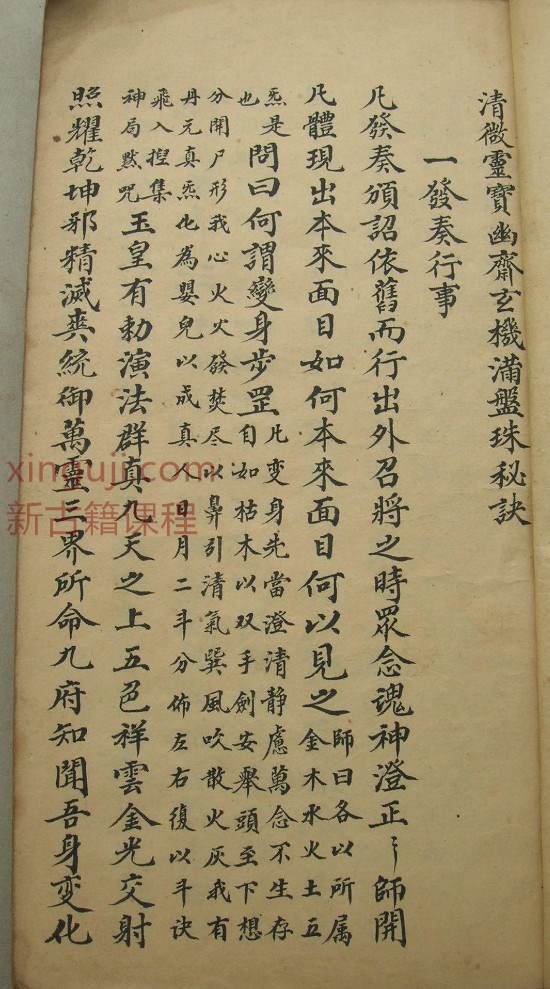 清微靈寶幽齋玄機滿盤珠秘訣
一發奏行事
凡發奏頒詔依舊而行出外召將之時眾念魂神澄正〻師開
凡體現出本來面目如何本來面目何以見之師曰各以所属
金木水火土五
炁是
也
問曰何謂變身步罡凡变身先當澄清静慮萬念不生存
自如枯木以双手劍安舉頭至下想
分開尸形我心火火發焚尽以鼻引清氣巽風吹散火灰我有
丹元真炁化為嬰兒以成真人日月二斗分佈左右復以斗诀
飛入揑集
神局默咒
玉皇有勅演法群真九天之上五色祥雲金光交射
照耀乾坤邪精滅爽統御萬靈三界所命九府知聞吾身变化
xinguji.com
新古籍课程